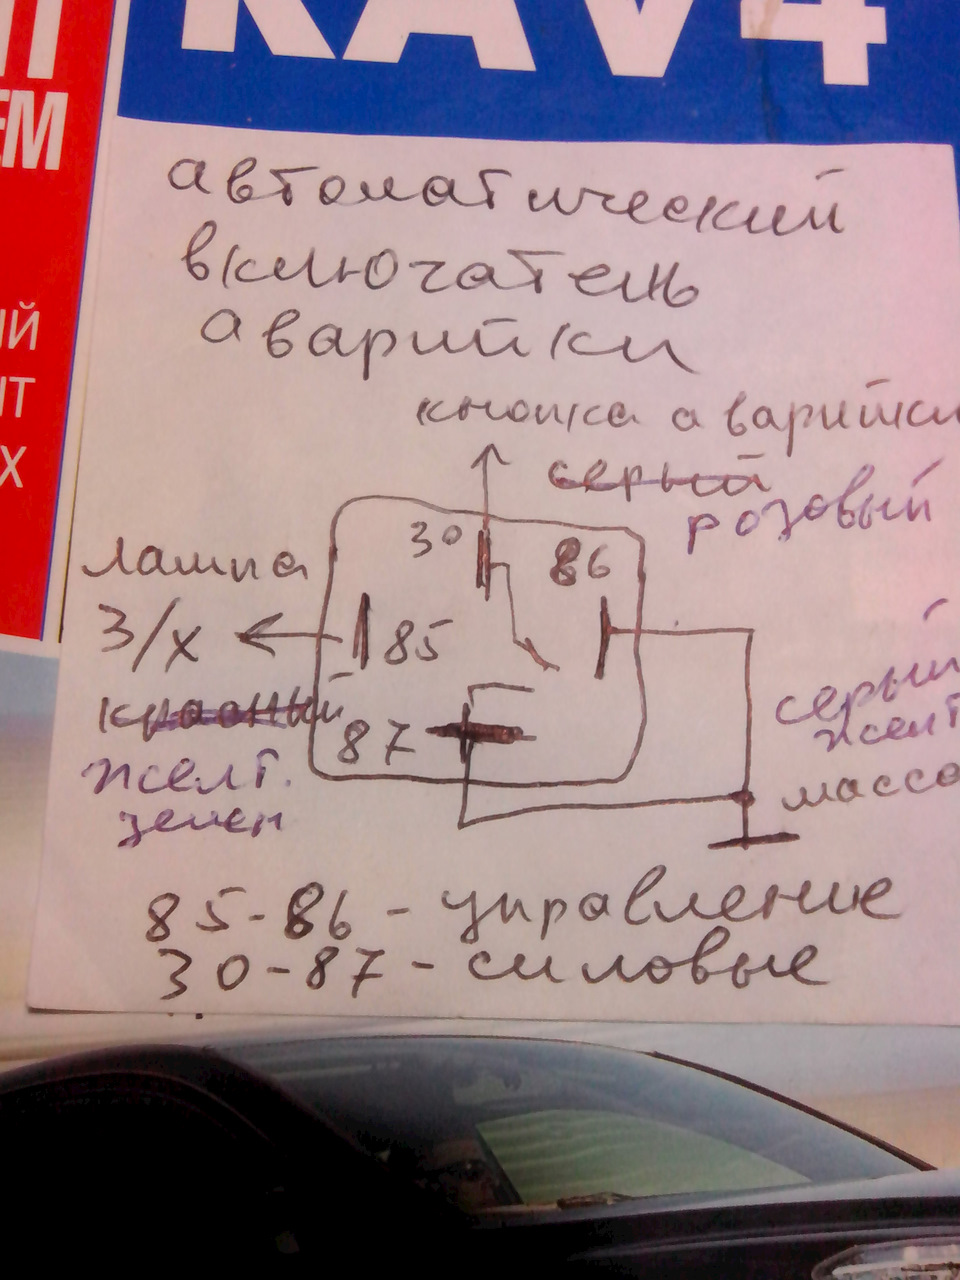 RAV4
ЕМ
ИЙ
ИТ
Х
автоматический
включатель
аварийки
кнопка аварийки
серый
розовый
30
86
лампа
З/х
85
красный
87
желт.
зелен
серый
желт
масса
85-86 - управление
30-87 - силовые